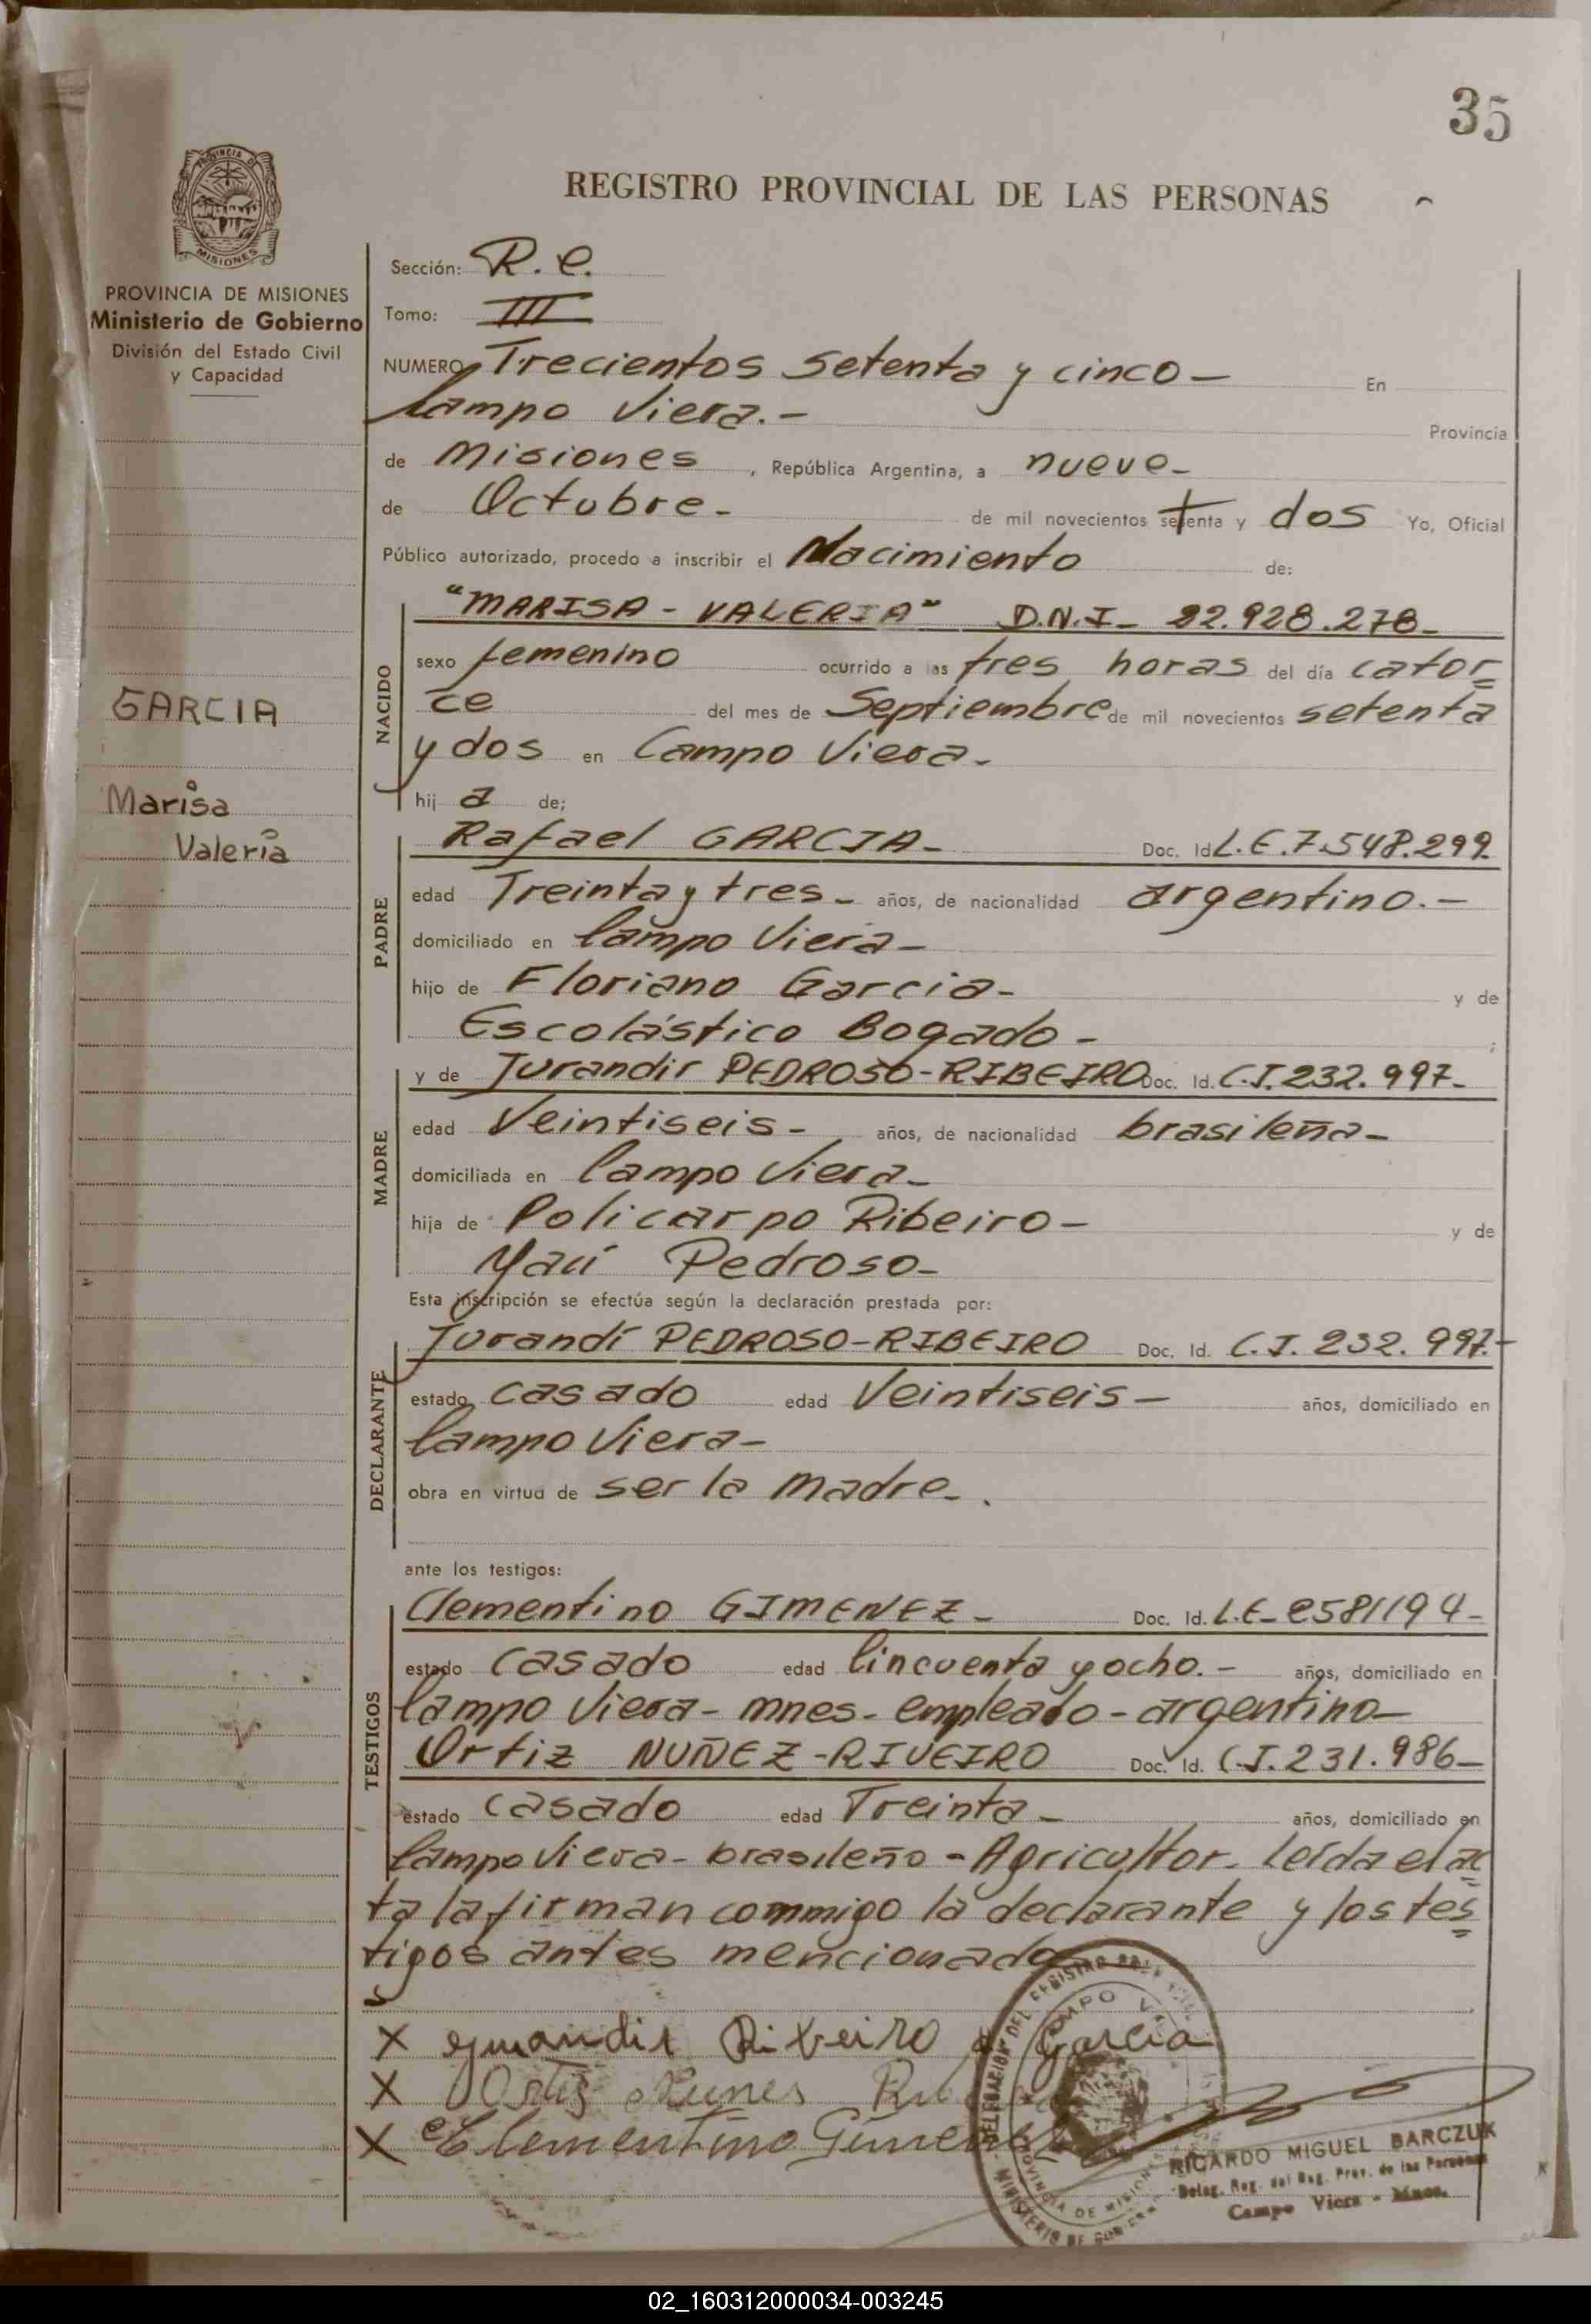 35
REGISTRO PROVINCIAL DE LAS PERSONAS
PROVINCIA DE MISIONES
Ministerio de Gobierno
División del Estado Civil
y Capacidad
GARCIA
Marisa
Valeria
Sección: R. C.
Tomo: III
NUMERO Trecientos setenta y cinco - En
Campo Viera. - Provincia
de Misiones, República Argentina, a nueve -
de Octubre - de mil novecientos setenta y dos Yo, Oficial
Público autorizado, procedo a inscribir el Nacimiento de:
"MARISA - VALERIA" D.N.I - 22.928.278 -
NACIDO
sexo femenino ocurrido a las tres horas del día cator
ce del mes de Septiembre de mil novecientos setenta
y dos en Campo Viera -
hij a de;
PADRE
Rafael GARCIA - Doc. Id L.E. 7.548.299.
edad Treinta y tres - años, de nacionalidad argentino. -
domiciliado en Campo Viera -
hijo de Floriano Garcia - y de
Escolástico Bogado - ;
MADRE
y de Jurandir PEDROSO - RIBEIRO Doc. Id. C.I. 232.997 -
edad Veintiseis - años, de nacionalidad brasileña -
domiciliada en Campo Viera -
hija de Policarpo Ribeiro - y de
Yaú Pedroso -
Esta inscripción se efectúa según la declaración prestada por:
DECLARANTE
Jurandí PEDROSO - RIBEIRO Doc. Id. C.I. 232.997. -
estado casado edad Veintiseis - años, domiciliado en
Campo Viera -
obra en virtud de ser la madre - .
ante los testigos:
TESTIGOS
Clementino GIMENEZ - Doc. Id. L.E - 2581194 -
estado casado edad Cincuenta y ocho. - años, domiciliado en
Campo Viera - mnes - empleado - argentino -
Ortiz NUÑEZ - RIVEIRO Doc. Id. C.I. 231.986 -
estado casado edad Treinta - años, domiciliado en
Campo Viera - brasileño - Agricultor - Leída el ac
ta la firman commigo la declarante y los tes
tigos antes mencionado
s
X Jurandir Ribeiro d Garcia
X Ortiz Nunes
X Clementino Gimenez
DELEGACION DEL REGISTRO
CAMPO
PROVINCIA DE MISIONES
MINISTERIO DE
RICARDO MIGUEL BARCZUK
Deleg. Reg. del Reg. Prov. de las Personas
Campo Viera - Mnes.
02_160312000034-003245